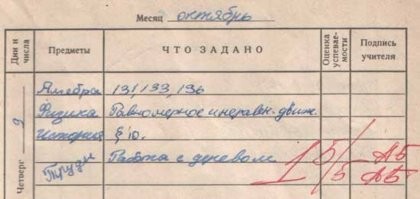 Месяц октябрь
Дни и числа Предметы ЧТО ЗАДАНО Оценка успевае-мости Подпись учителя
Четверг 9
Алгебра 131, 133, 136
Физика Равномерное и нерав. движ.
История § 10.
Труды Работа с деревом 5/5 АБ
АБ